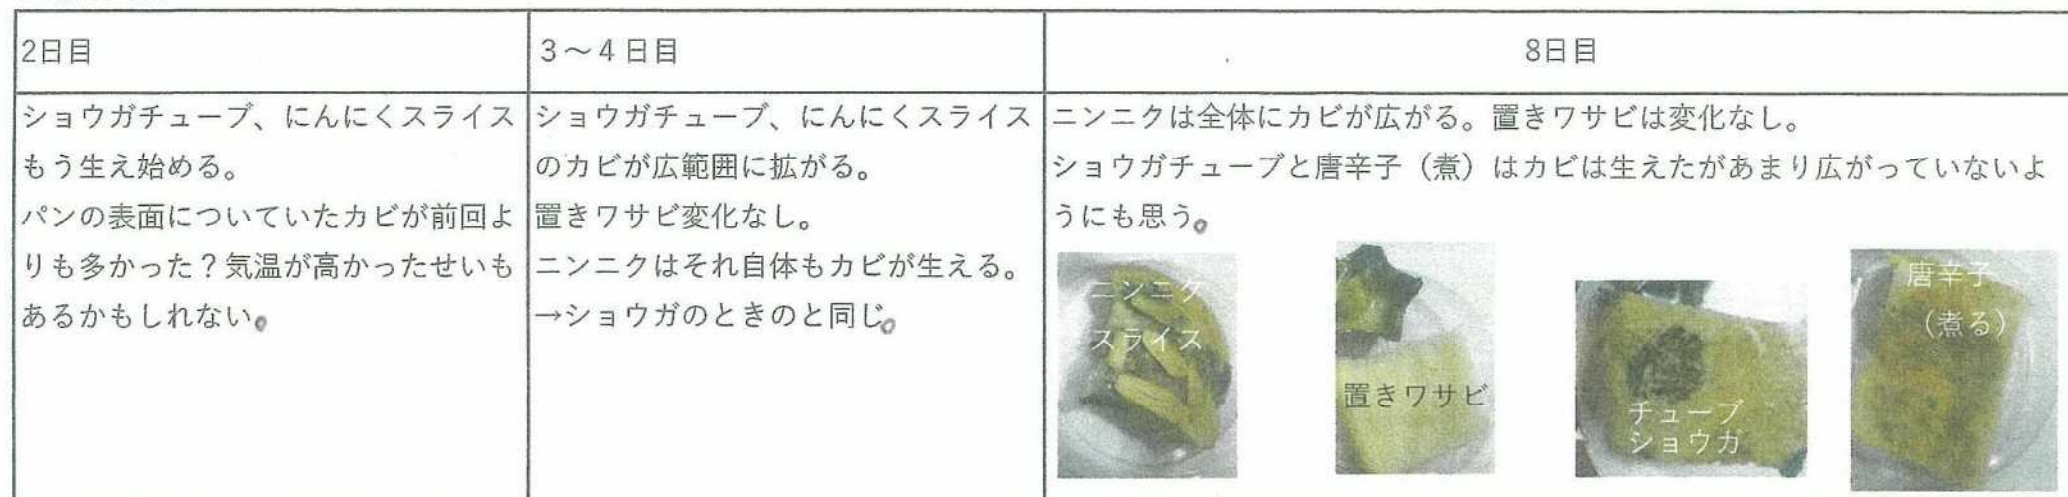 2日目
3～4日目
8日目
ショウガチューブ、にんにくスライス
もう生え始める。
パンの表面についていたカビが前回よ
りも多かった？気温が高かったせいも
あるかもしれない。
ショウガチューブ、にんにくスライス
のカビが広範囲に拡がる。
置きワサビ変化なし。
ニンニクはそれ自体もカビが生える。
→ショウガのときのと同じ。
ニンニクは全体にカビが広がる。置きワサビは変化なし。
ショウガチューブと唐辛子（煮）はカビは生えたがあまり広がっていないよ
うにも思う。
ニンニク
スライス
置きワサビ
チューブ
ショウガ
唐辛子
（煮る）